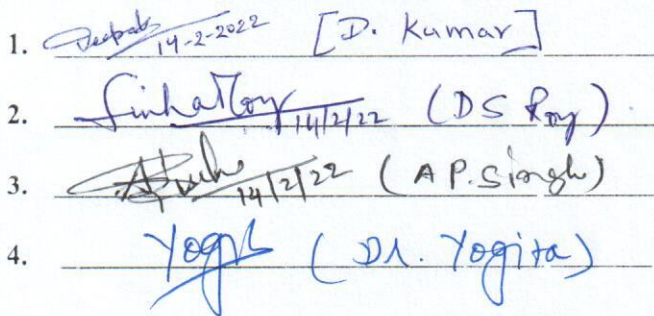 1. Deepak 14-2-2022 [D. Kumar]
2. Sinha Roy 14/2/22 (DS Roy)
3. 14/2/22 (A P. Singh)
4. Yogita (Dr. Yogita)